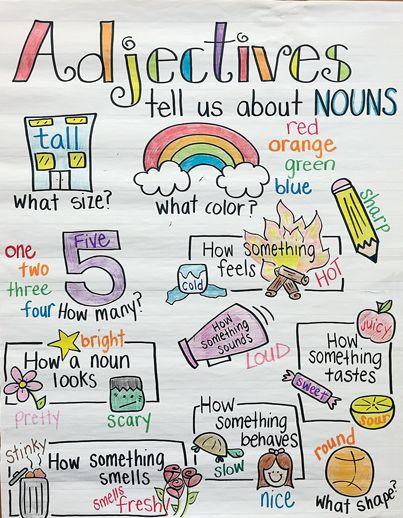 Adjectives
tell us about NOUNS
tall
What size?
What color?
red
orange
green
blue
sharp
one
two
three
four
Five
5
How many?
How something
feels
cold
HOT
bright
How a noun
looks
pretty
scary
How
something
sounds
LOUD
juicy
How
something
tastes
sweet
sour
stinky
How something
smells
smells
fresh!
How
something
behaves
slow
nice
round
What shape?